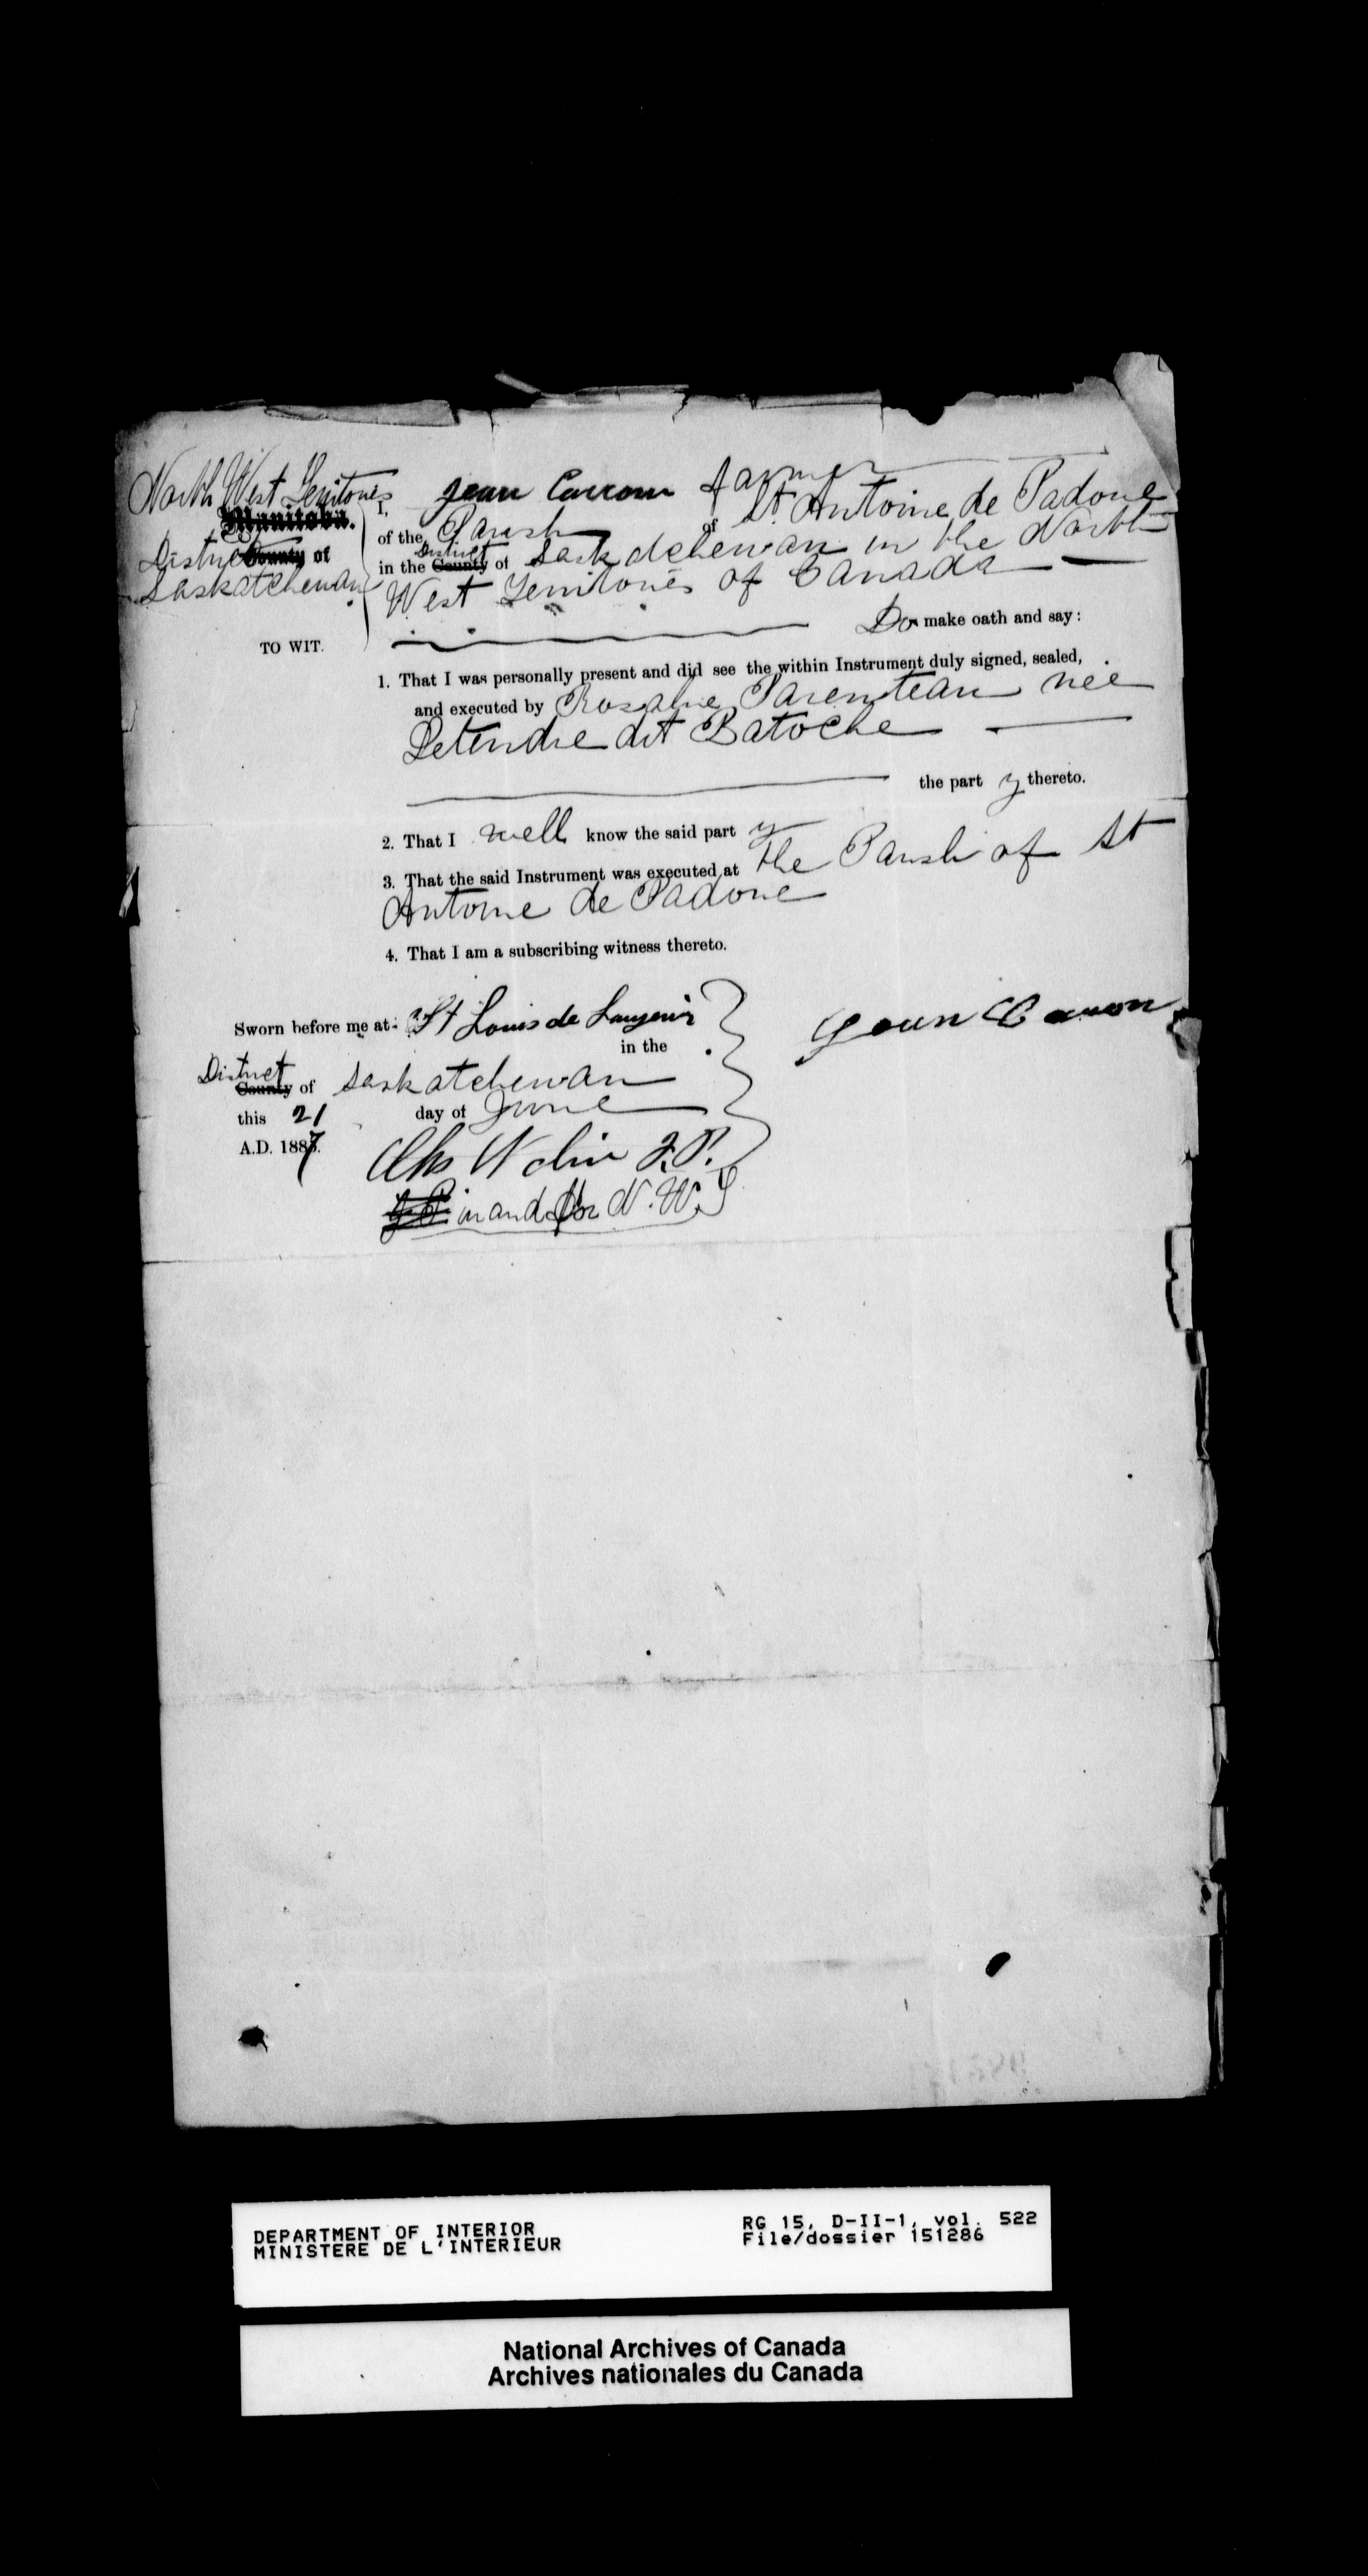 North West Territories
Manitoba.
District County of
Saskatchewan
TO WIT.
I, Jean Carron farmer
of the Parish of St. Antoine de Padoue
in the District County of Saskatchewan in the North
West Territories of Canada
Do make oath and say:
1. That I was personally present and did see the within Instrument duly signed, sealed,
and executed by Rosalie Parenteau née
Letendre dit Batoche
the party thereto.
2. That I well know the said party
3. That the said Instrument was executed at the Parish of St
Antoine de Padoue
4. That I am a subscribing witness thereto.
Sworn before me at St Louis de Langevin
in the
District County of Saskatchewan
this 21 day of June
A.D. 1887.
Jean Caron
Chs Nolin J.P.
J P in and for N.W.T
DEPARTMENT OF INTERIOR
MINISTERE DE L'INTERIEUR
RG 15, D-II-1, vol. 522
File/dossier 151286
National Archives of Canada
Archives nationales du Canada